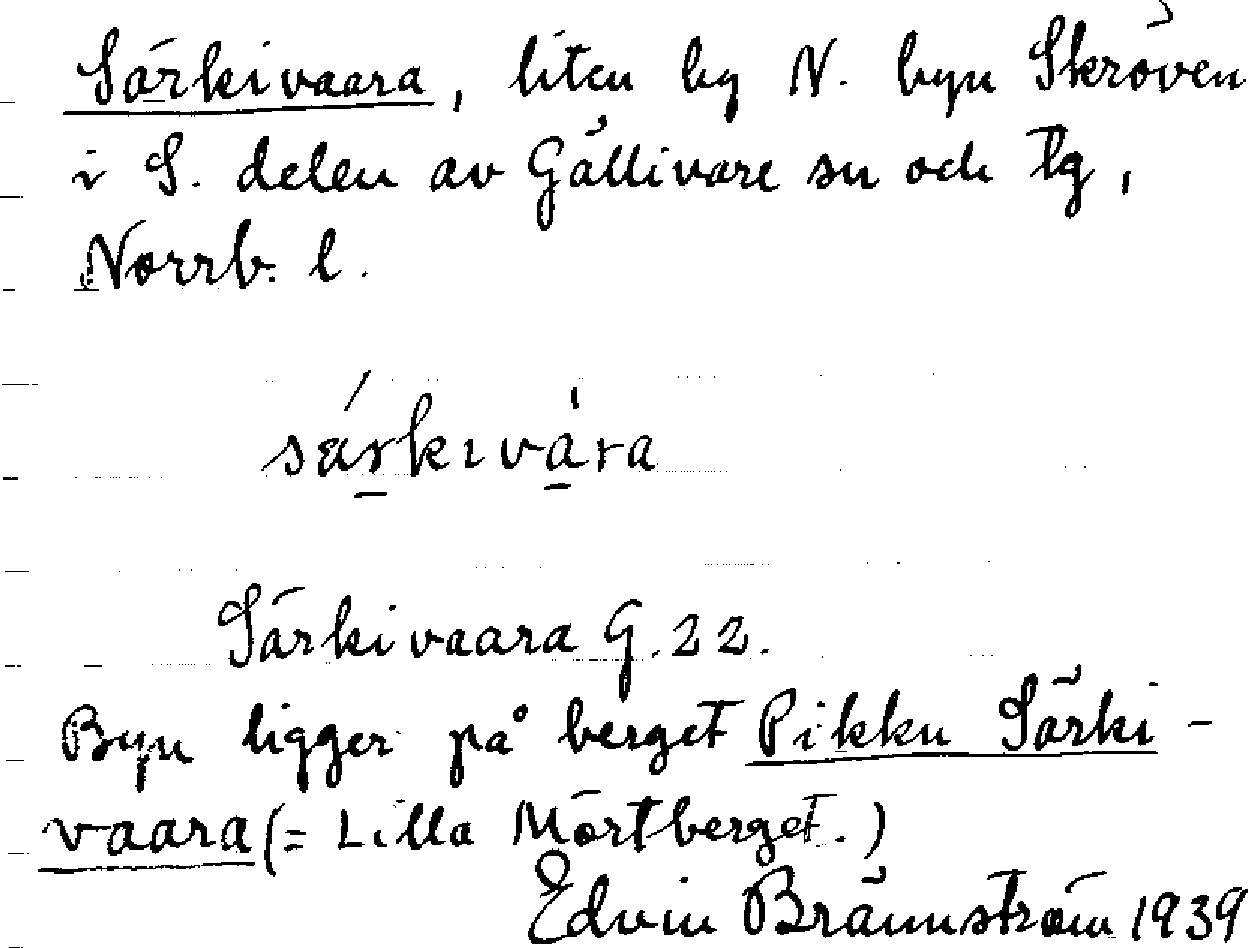 Särkivaara, liten by N. byn Skröven
i S. delen av Gällivare sn och tg,
Norrb. l.
särkɪvára
Särkivaara G. 22.
Byn ligger på berget Pikku Särki-
vaara (= Lilla Mörtberget.)
Edvin Brännström 1939